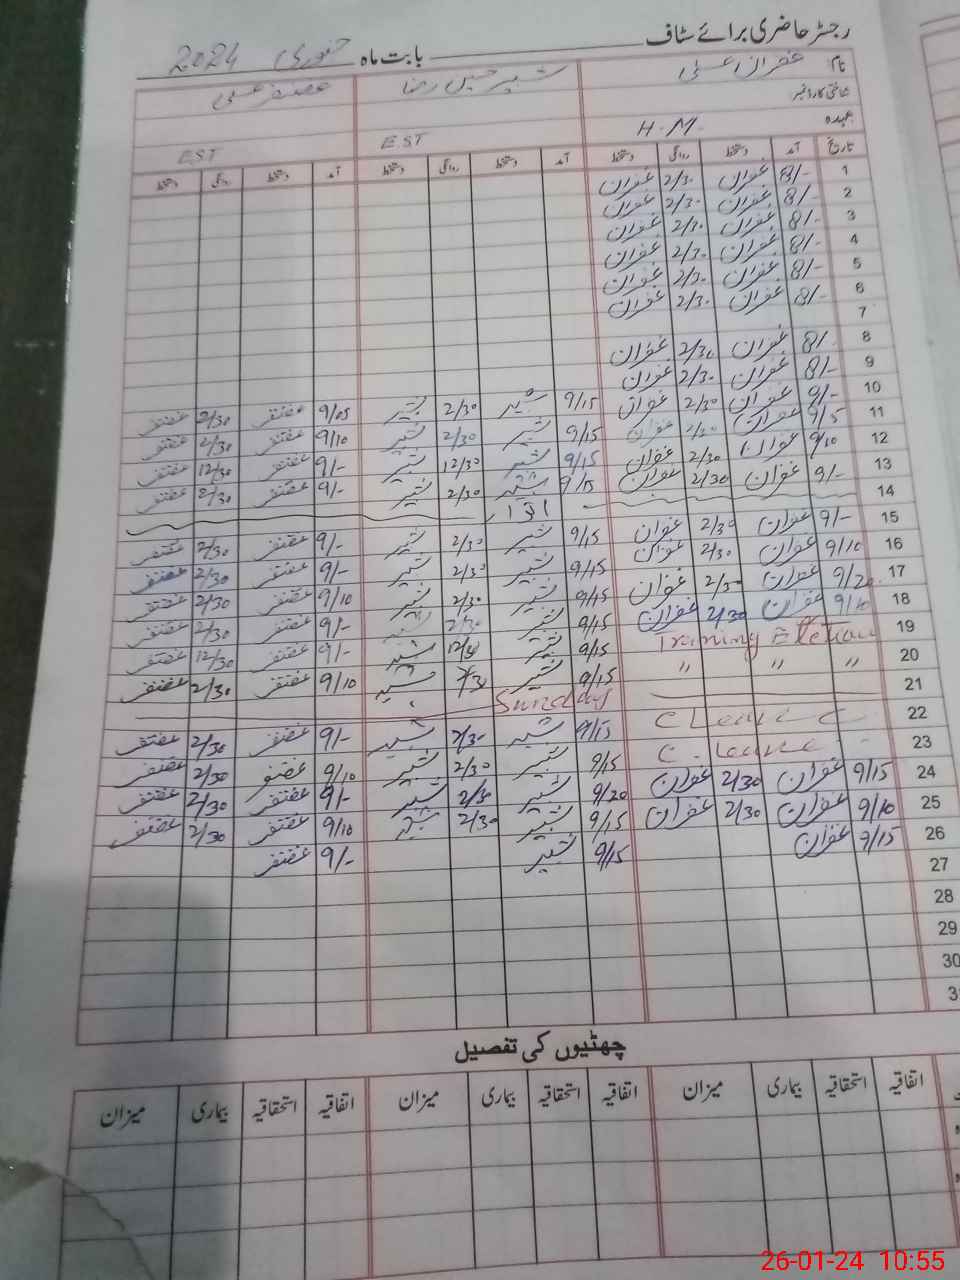 رجسٹر حاضری برائے سٹاف بابت ماہ جنوری 2024
نام: غفران علی شبیر حسین رضا غضنفر علی
شناختی کارڈ نمبر
عہدہ H.M. EST EST
تاریخ آمد دستخط روانگی دستخط آمد دستخط روانگی دستخط آمد دستخط روانگی دستخط
1 8/- غفران 2/30 غفران
2 8/- غفران 2/30 غفران
3 8/- غفران 2/30 غفران
4 8/- غفران 2/30 غفران
5 8/- غفران 2/30 غفران
6 8/- غفران 2/30 غفران
7
8 8/- غفران 2/30 غفران
9 8/- غفران 2/30 غفران
10 9/- غفران 2/30 غفران 9/15 شبیر 2/30 شبیر 9/05 غضنفر 2/30 غضنفر
11 9/5 غفران 2/30 غفران 9/15 شبیر 2/30 شبیر 9/10 غضنفر 2/30 غضنفر
12 9/10 غفران 2/30 غفران 9/15 شبیر 12/30 شبیر 9/- غضنفر 12/30 غضنفر
13 9/- غفران 2/30 غفران 9/15 شبیر 2/30 شبیر 9/- غضنفر 2/30 غضنفر
14 اتوار
15 9/- غفران 2/30 غفران 9/15 شبیر 2/30 شبیر 9/- غضنفر 2/30 غضنفر
16 9/10 غفران 2/30 غفران 9/15 شبیر 2/30 شبیر 9/- غضنفر 2/30 غضنفر
17 9/20 غفران 2/30 غفران 9/15 شبیر 2/30 شبیر 9/10 غضنفر 2/30 غضنفر
18 9/10 غفران 2/30 غفران 9/15 شبیر 2/30 شبیر 9/- غضنفر 2/30 غضنفر
19 Training Eletion 9/15 شبیر شبیر 9/- غضنفر 12/30 غضنفر
20 " " " 9/15 شبیر شبیر 9/10 غضنفر 2/30 غضنفر
21 Sunday
22 C Leave 9/15 شبیر 2/30 شبیر 9/- غضنفر 2/30 غضنفر
23 C. leave 9/15 شبیر 2/30 شبیر 9/10 غضنفر 2/30 غضنفر
24 9/15 غفران 2/30 غفران 9/20 شبیر 2/30 شبیر 9/- غضنفر 2/30 غضنفر
25 9/10 غفران 2/30 غفران 9/15 شبیر 2/30 شبیر 9/10 غضنفر 2/30 غضنفر
26 9/15 غفران 9/15 شبیر 9/- غضنفر
27
28
29
30
3
چھٹیوں کی تفصیل
اتفاقیہ استحقاقیہ بیماری میزان اتفاقیہ استحقاقیہ بیماری میزان اتفاقیہ استحقاقیہ بیماری میزان
26-01-24 10:55